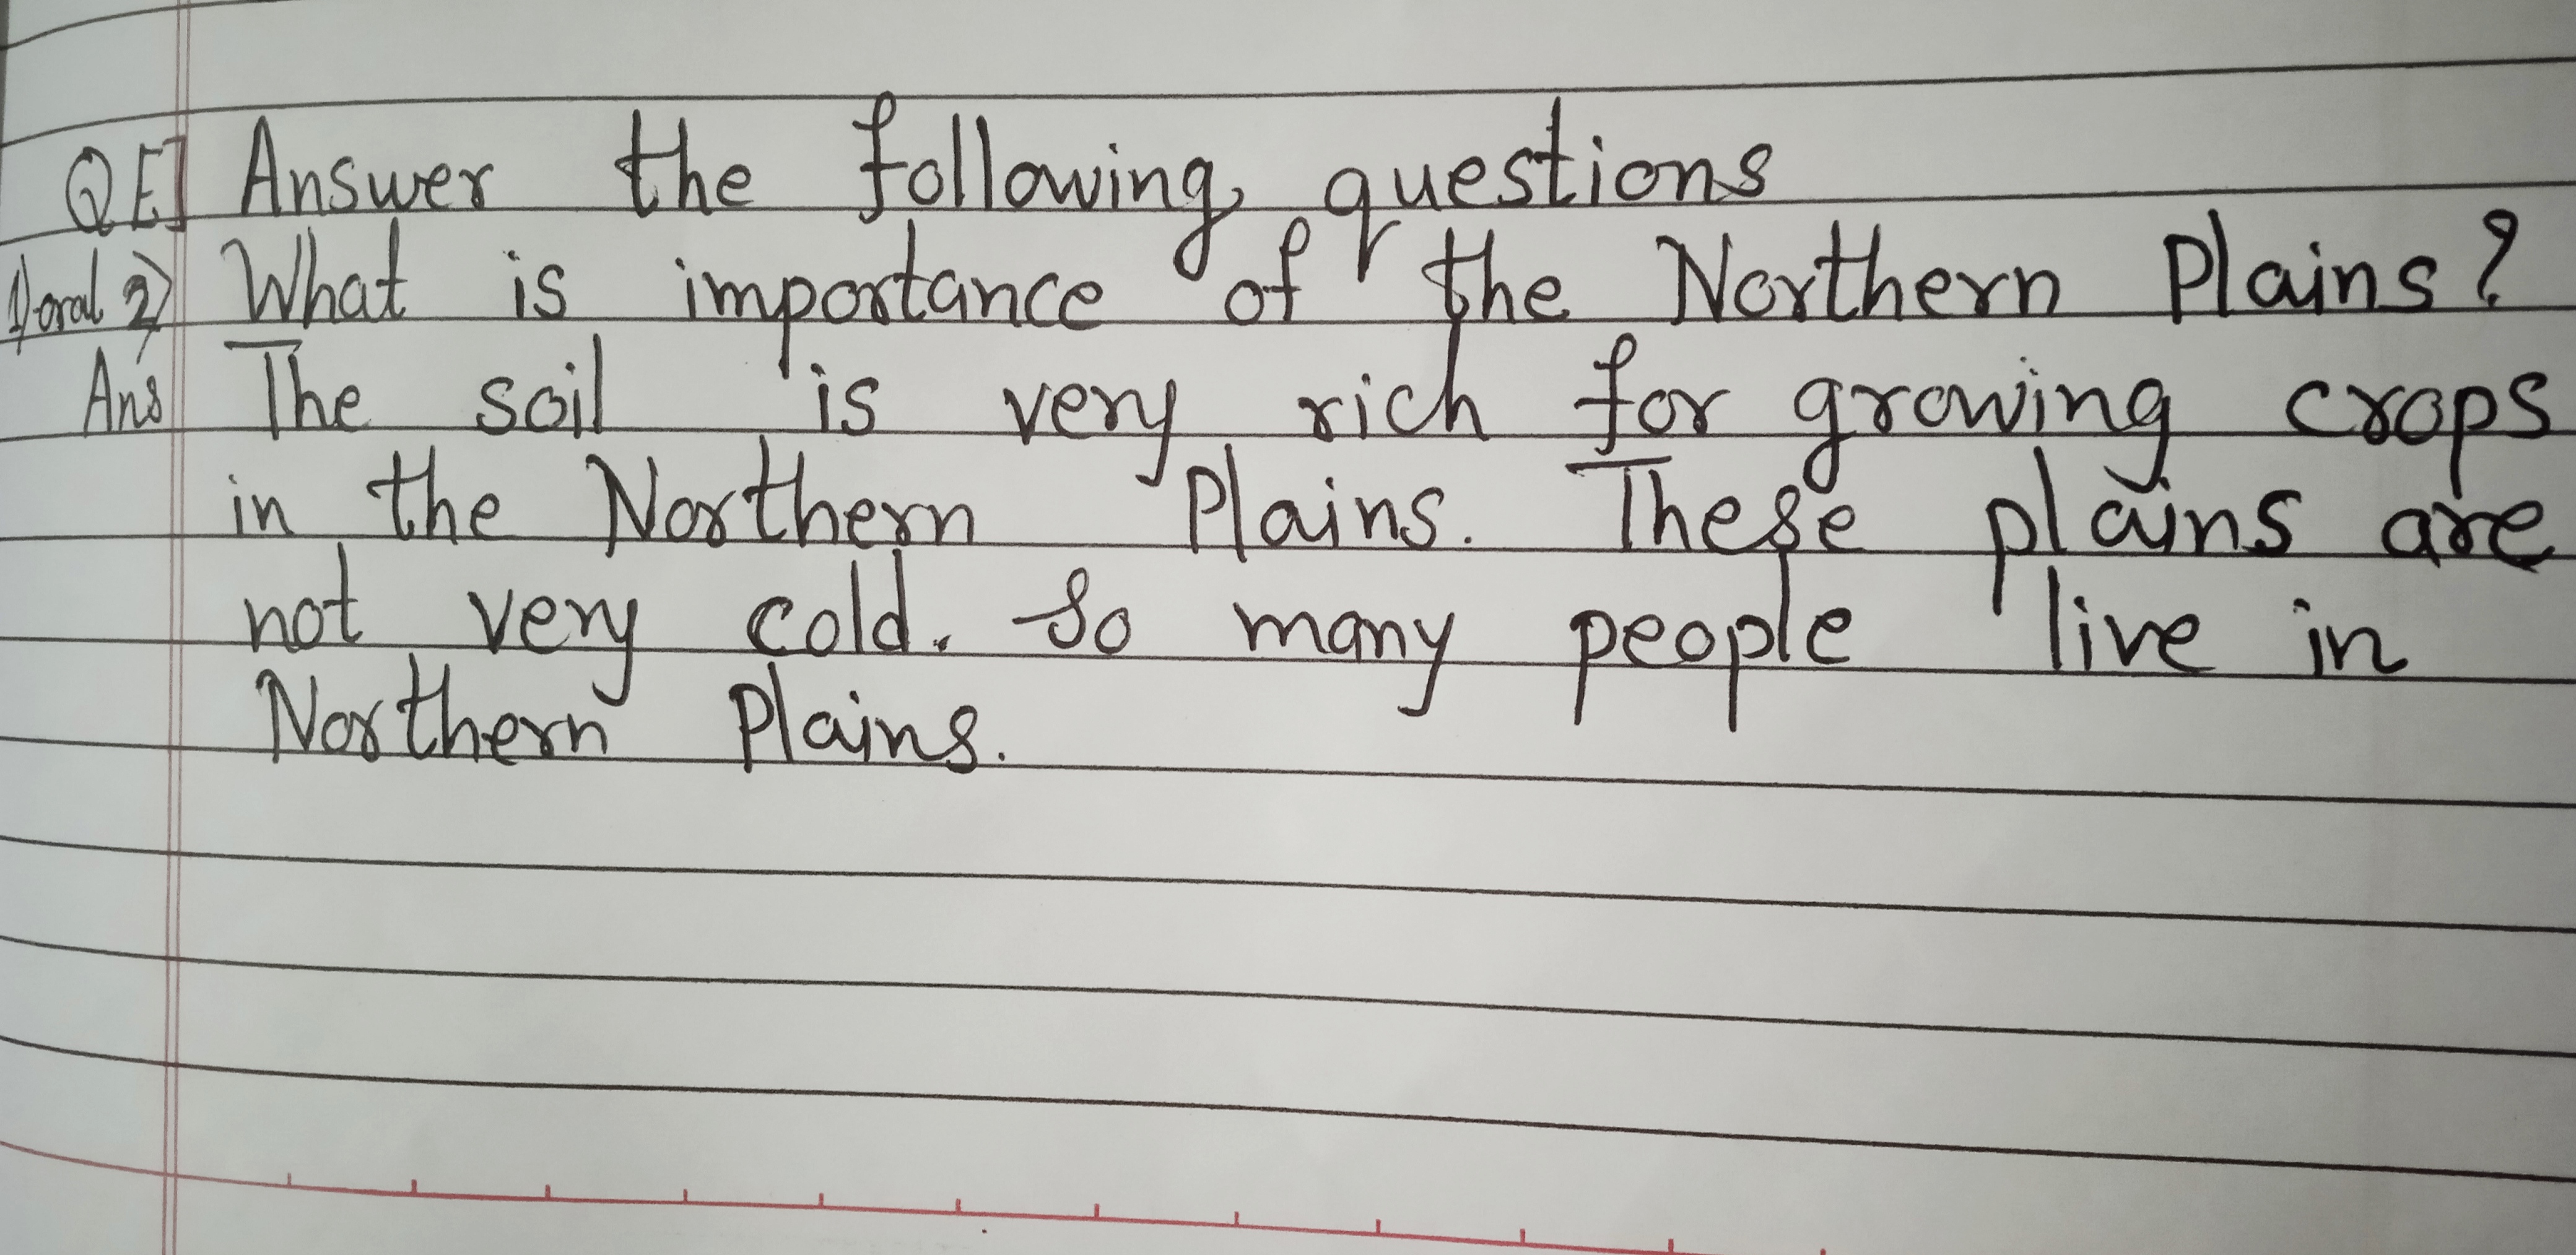 QE] Answer the following questions
1) oral 2) What is importance of the Northern Plains?
Ans The soil is very rich for growing crops
in the Northern Plains. These plains are
not very cold. So many people live in
Northern Plains.